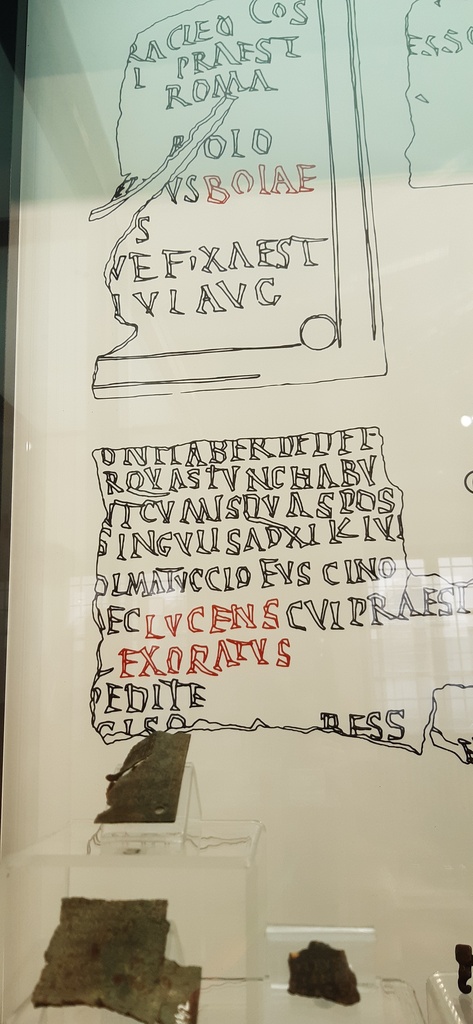 COS
RACLEO
I PRAEST
ROMA
BOIO
VS BOIAE
S
VE FIXA EST
I VLI AVG
ESSO
ONTIABERDEDEF
ROVASTVNCHABV
ITCVMISQVASPOS
SINGVLISADXIKIVL
OLMATVCCIO FVS CINO
EC LVCENS CVI PRAEST
EXORATVS
PEDITE
CISO RESS